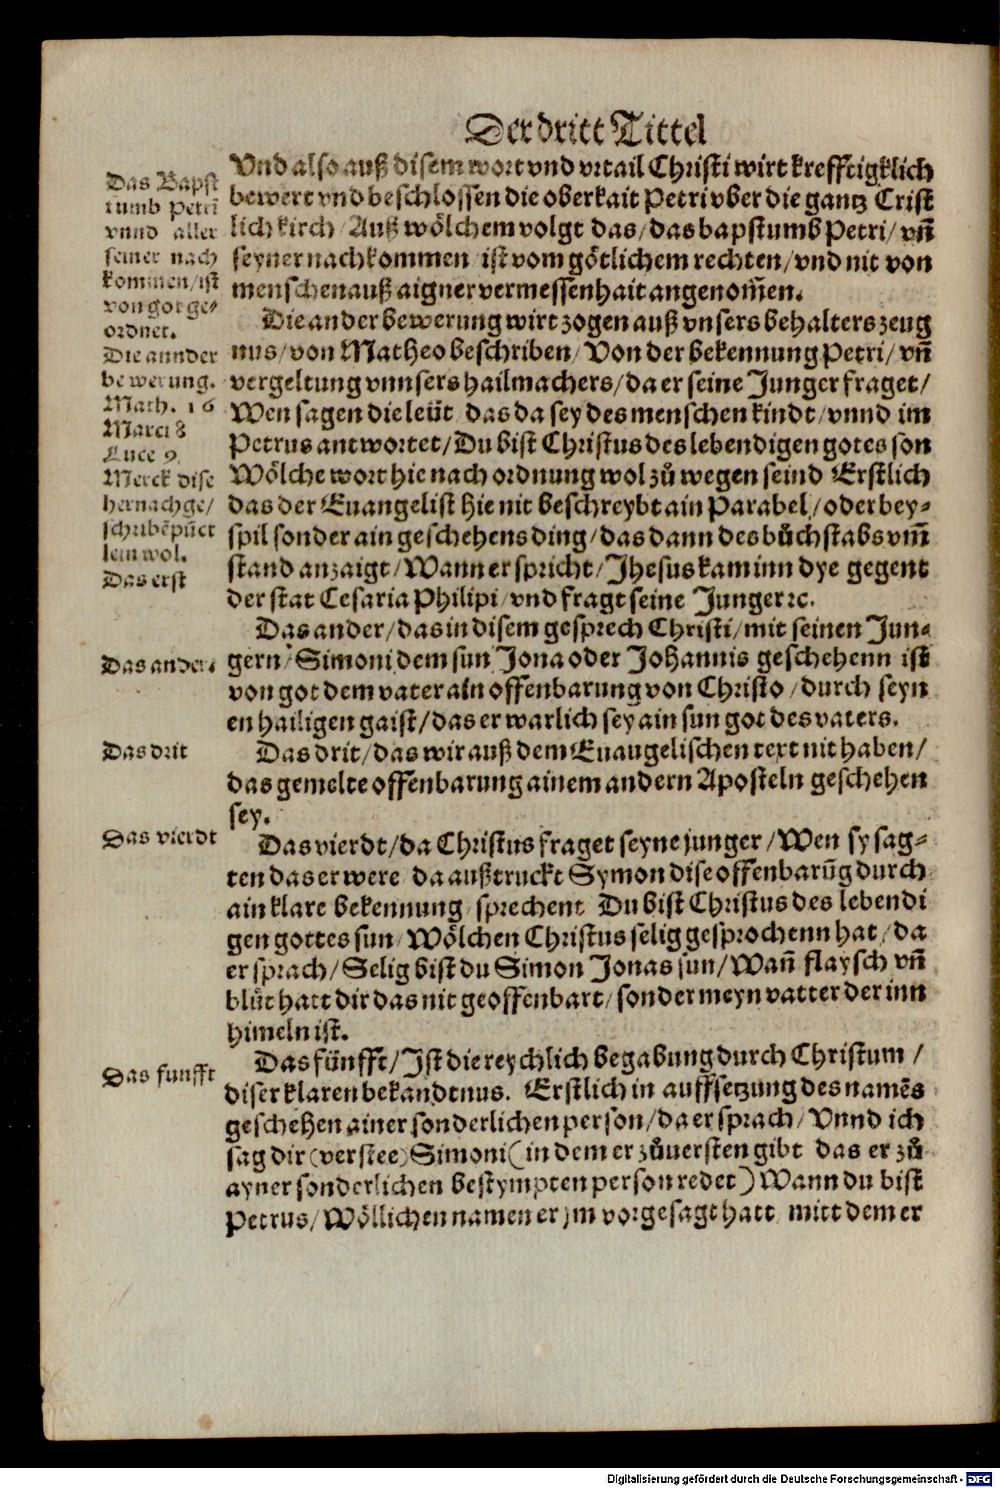 Der dritt Tittel
Vnd also auß disem wort vnd vrtail Christi wirt krefftigklich
bewert vnd beschlossen die oberkait Petri vber die gantz Crist
lich kirch / Auß wölchem volgt das / das bapstumb Petri / vñ
seyner nachkommen ist vom götlichem rechten / vnd nit von
menschen auß aigner vermessenhait angenom̃en.
Das Bapst
tumb Petri
vnnd aller
seiner nach
kommen / ist
von got ge⸗
ordnet.
Die ander bewerung wirt zogen auß vnsers behalters zeug
nus / von Matheo beschriben / Von der bekennung Petri / vñ
vergeltung vnnsers hailmachers / da er seine Junger fraget /
Wen sagen die leüt das da sey des menschen kindt / vnnd im
Petrus antwortet / Du bist Christus des lebendigen gotes son
Wölche wort hie nach ordnung wol zů wegen seind Erstlich
das der Euangelist hie nit beschreybt ain Parabel / oder bey⸗
spil sonder ain geschehens ding / das dann des bůchstabs vm̃
stand anzaigt / Wann er spricht / Jhesus kam inn dye gegent
der stat Cesaria Philipi / vnd fragt seine Junger ⁊c.
Die annder
bewerung.
Math. 16
Marci 8
Luce 9
Merck dise
hernachge /
schribẽ pũct
lein wol.
Das erst
Das ander / das in disem gesprech Christi / mit seinen Jun⸗
gern / Simoni dem sun Jona oder Johannis geschehenn ist
von got dem vater ain offenbarung von Christo / durch seyn
en hailigen gaist / das er warlich sey ain sun got des vaters.
Das ander.
Das drit / das wir auß dem Euangelischen text nit haben /
das gemelte offenbarung ainem andern Aposteln geschehen
sey.
Das drit
Das vierdt / da Christus fraget seyne junger / Wen sy sag⸗
ten das er were da außtruckt Symon dise offenbarũg durch
ain klare bekennung sprechent Du bist Christus des lebendi
gen gottes sun / Wölchen Christus selig gesprochenn hat / da
er sprach / Selig bist du Simon Jonas sun / Wañ flaysch vñ
blůt hatt dir das nit geoffenbart / sonder meyn vatter der inn
himeln ist.
Das vierdt
Das fünfft / Ist die reychlich begabung durch Christum /
diser klaren bekandtnus. Erstlich in auffsetzung des namẽs
geschehen ainer sonderlichen person / da er sprach / Vnnd ich
sag dir (verstee) Simoni (in dem er zůuersten gibt das er zů
ayner sonderlichen bestympten person redet) Wann du bist
Petrus / Wöllichen namen er jm vorgesagt hatt mitt dem er
Das funfft
Digitalisierung gefördert durch die Deutsche Forschungsgemeinschaft - DFG